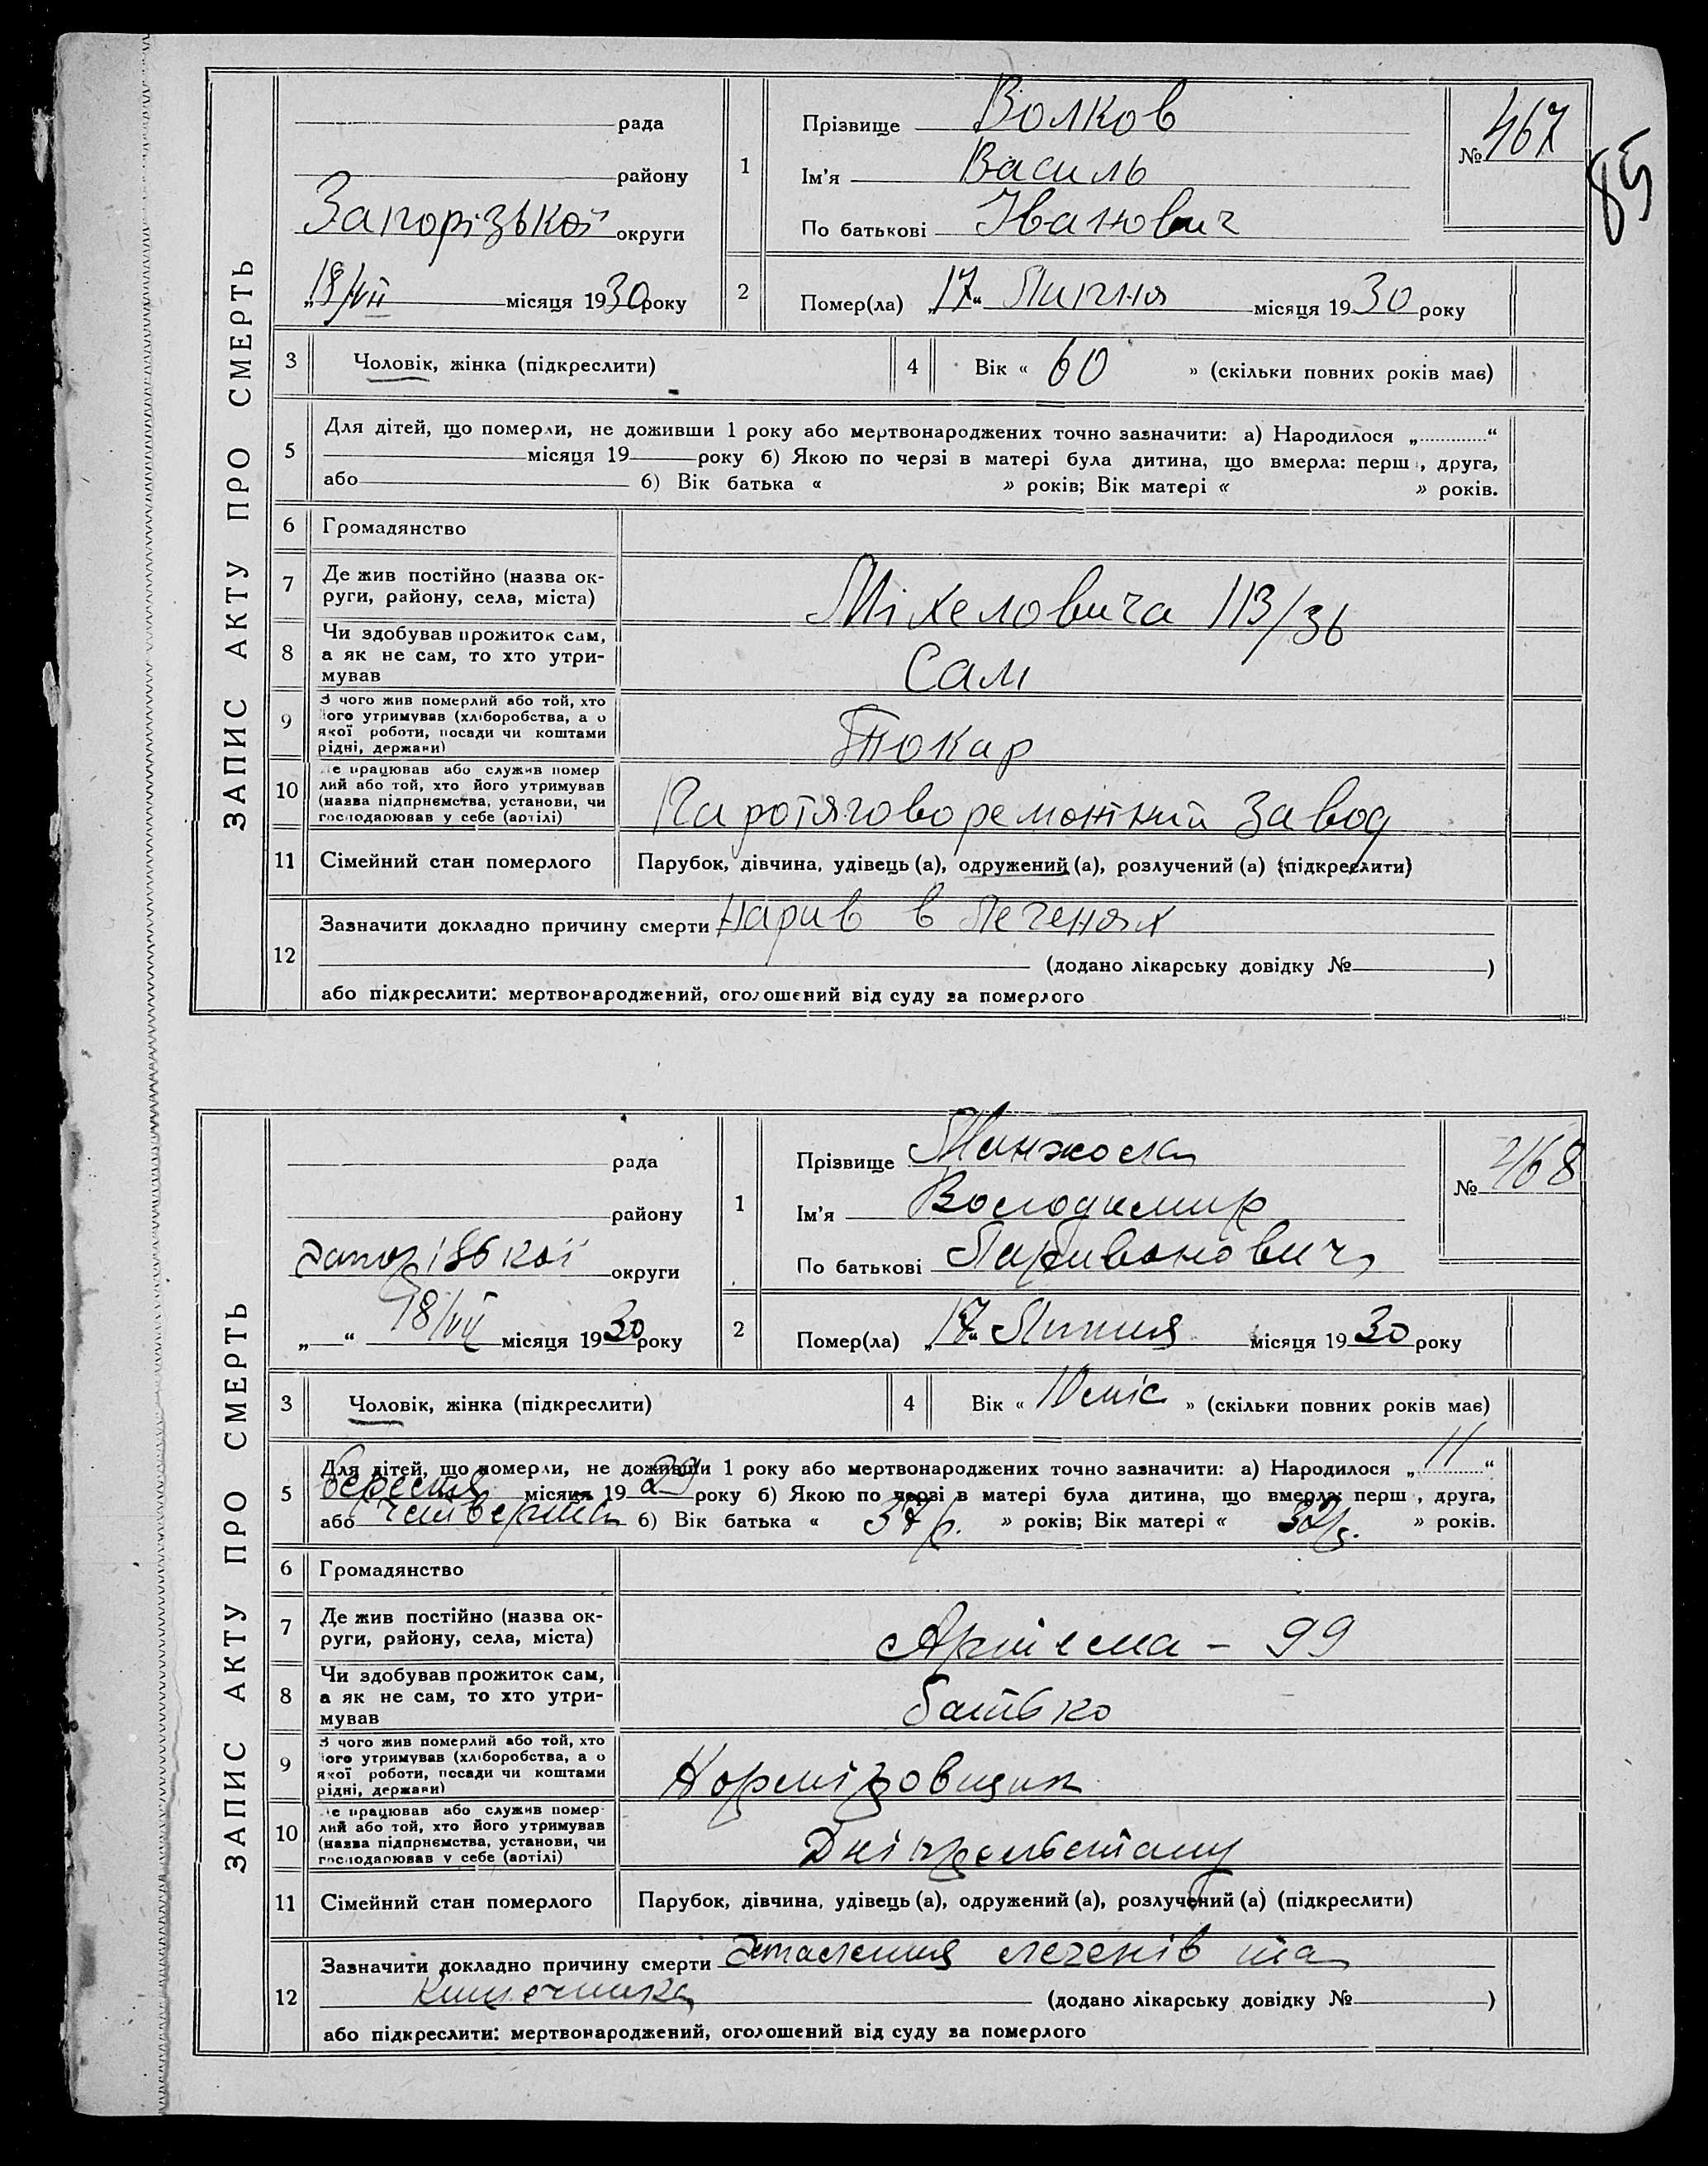 85
ЗАПИС АКТУ ПРО СМЕРТЬ
рада
району
Запорізької округи
„18/VII місяця 1930 року
1
Прізвище Волков
Ім’я Василь
По батькові Іванович
№ 467
2
Помер(ла) „17“ Липня місяця 1930 року
3 Чоловік, жінка (підкреслити)
4 Вік « 60 » (скільки повних років має)
5 Для дітей, що померли, не доживши 1 року або мертвонароджених точно зазначити: а) Народилося „ “
місяця 19 року б) Якою по черзі в матері була дитина, що вмерла: перш , друга,
або б) Вік батька « » років; Вік матері « » років.
6 Громадянство
7 Де жив постійно (назва ок-
руги, району, села, міста)
Міхеловича 113/36
8 Чи здобував прожиток сам,
а як не сам, то хто утри-
мував
Сам
9 З чого жив померлий або той, хто
його утримував (хліборобства, а о
якої роботи, посади чи коштами
рідні, держави)
Токар
10 Де працював або служив помер
лий або той, хто його утримував
(назва підприємства, установи, чи
господарював у себе (артілі)
Паротяговоремонтний завод
11 Сімейний стан померлого Парубок, дівчина, удівець (а), одружений (а), розлучений (а) (підкреслити)
12 Зазначити докладно причину смерти Нарив в печенях
(додано лікарську довідку № )
або підкреслити: мертвонароджений, оголошений від суду за померлого
ЗАПИС АКТУ ПРО СМЕРТЬ
рада
району
Запорізької округи
„ “ 18/VII місяця 1930 року
1
Прізвище Манжос
Ім’я Володимир
По батькові
№ 468
2
Помер(ла) „17“ Липня місяця 1930 року
3 Чоловік, жінка (підкреслити)
4 Вік « 10 міс » (скільки повних років має)
5 Для дітей, що померли, не доживши 1 року або мертвонароджених точно зазначити: а) Народилося „11“
вересня місяця 1929 року б) Якою по черзі в матері була дитина, що вмерла: перш , друга,
або четверта б) Вік батька « 37 р. » років; Вік матері « 32 р. » років.
6 Громадянство
7 Де жив постійно (назва ок-
руги, району, села, міста)
Артема – 99
8 Чи здобував прожиток сам,
а як не сам, то хто утри-
мував
батько
9 З чого жив померлий або той, хто
його утримував (хліборобства, а о
якої роботи, посади чи коштами
рідні, держави)
Норміровщик
10 Де працював або служив помер-
лий або той, хто його утримував
(назва підприємства, установи, чи
господарював у себе (артілі)
11 Сімейний стан померлого Парубок, дівчина, удівець (а), одружений (а), розлучений (а) (підкреслити)
12 Зазначити докладно причину смерти Запалення легенів та
кишечника
(додано лікарську довідку № )
або підкреслити: мертвонароджений, оголошений від суду за померлого